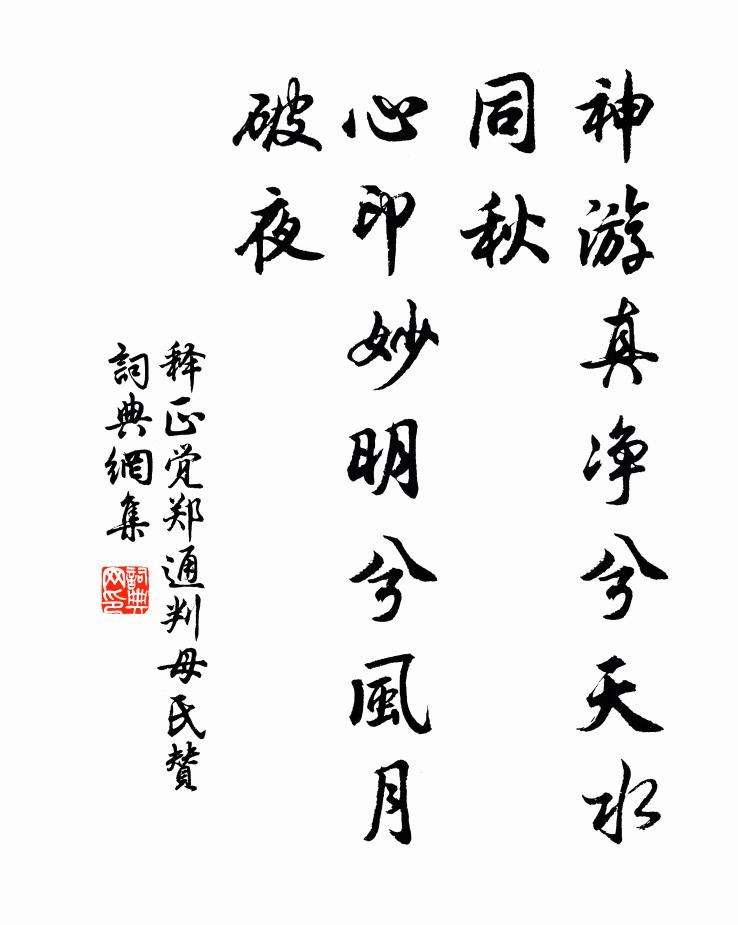 神游真净兮天水
同秋
心印妙明兮風月
破夜
释正觉郑通判母氏赞
詞典網集
詞典
网印